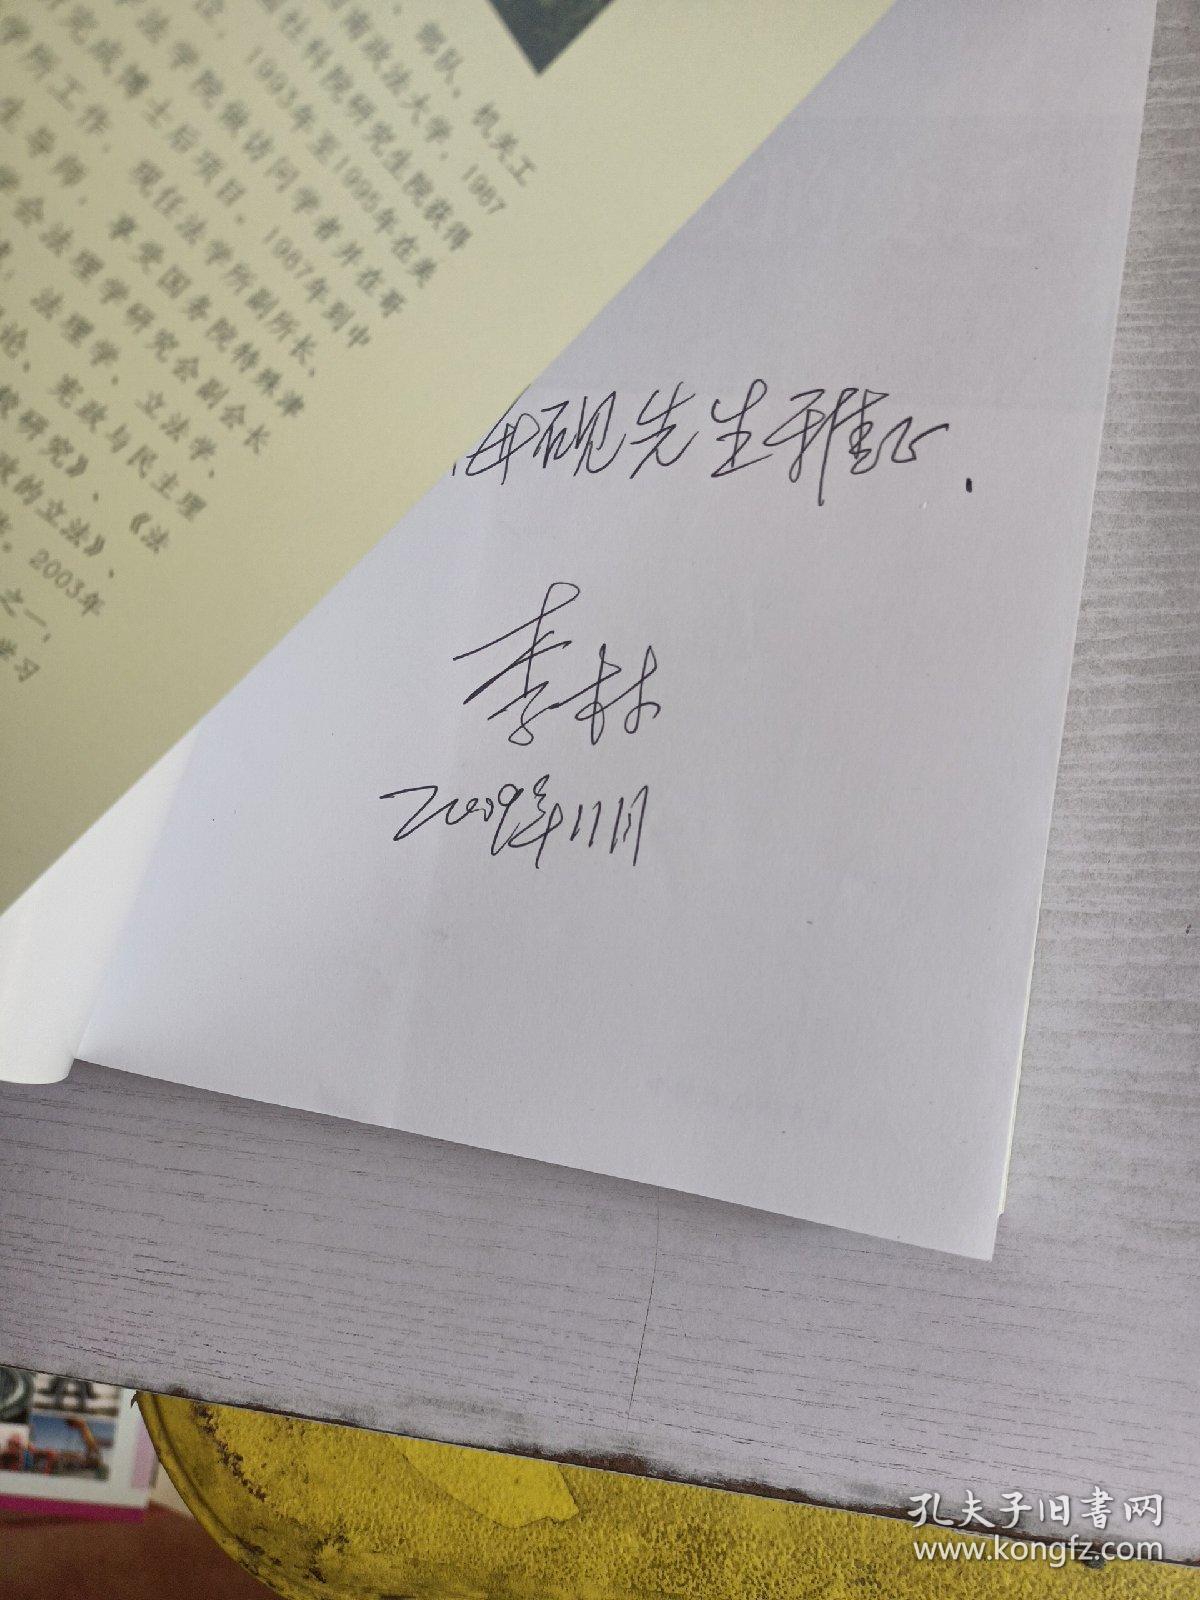 部队、机关工
南政法大学，1987
国社科院研究生院获得
1993年至1995年在美
学法学院做访问学者并在哥
究完成博士后项目。1987年到中
学所工作，现任法学所副所长、
生导师，享受国务院特殊津
学会法理学研究会副会长
法理学、立法学、
论、宪政与民主理
较研究》、《法
政的立法》、
2003年
之一，
学习
海砚先生雅正.
李林
2009年11月
孔夫子旧书网
www.kongfz.com